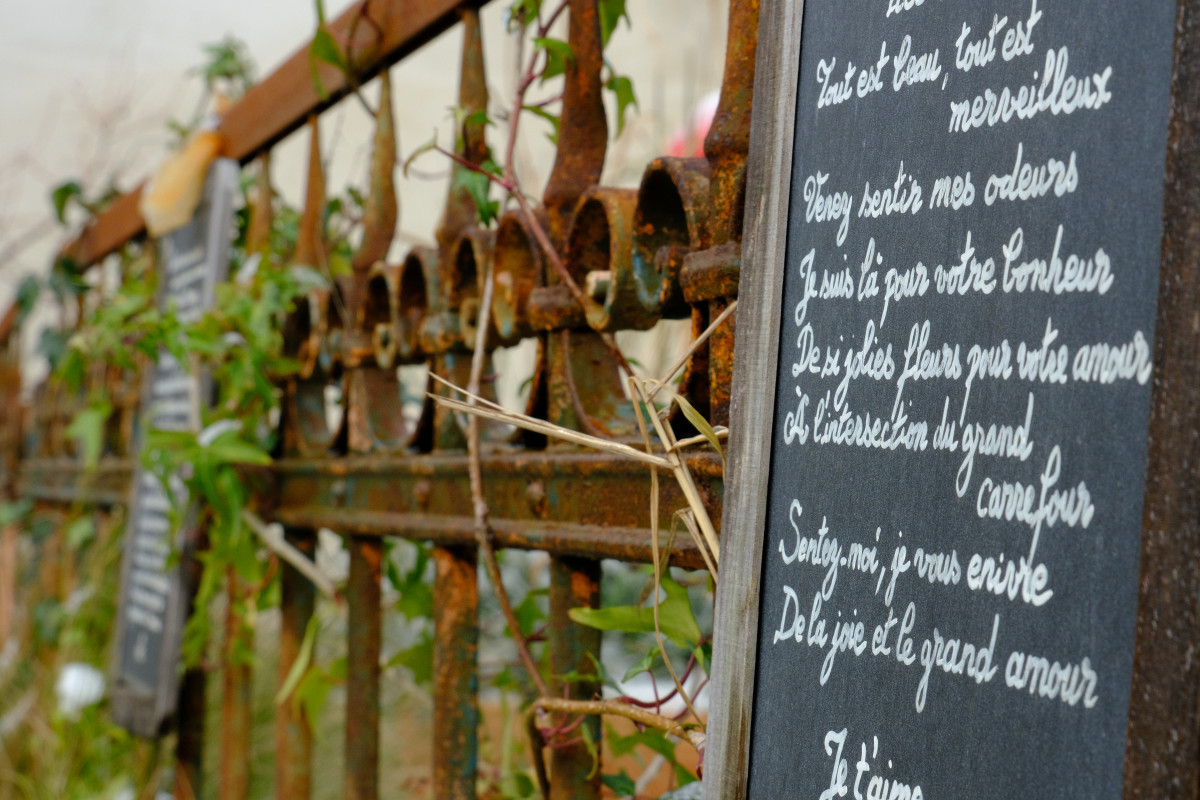 Tout est beau, tout est
merveilleux
Venez sentir mes odeurs
Je suis là pour votre bonheur
De si jolies fleurs pour votre amour
À l'intersection du grand
carrefour
Sentez-moi, je vous enivre
De la joie et le grand amour
Je t'aime